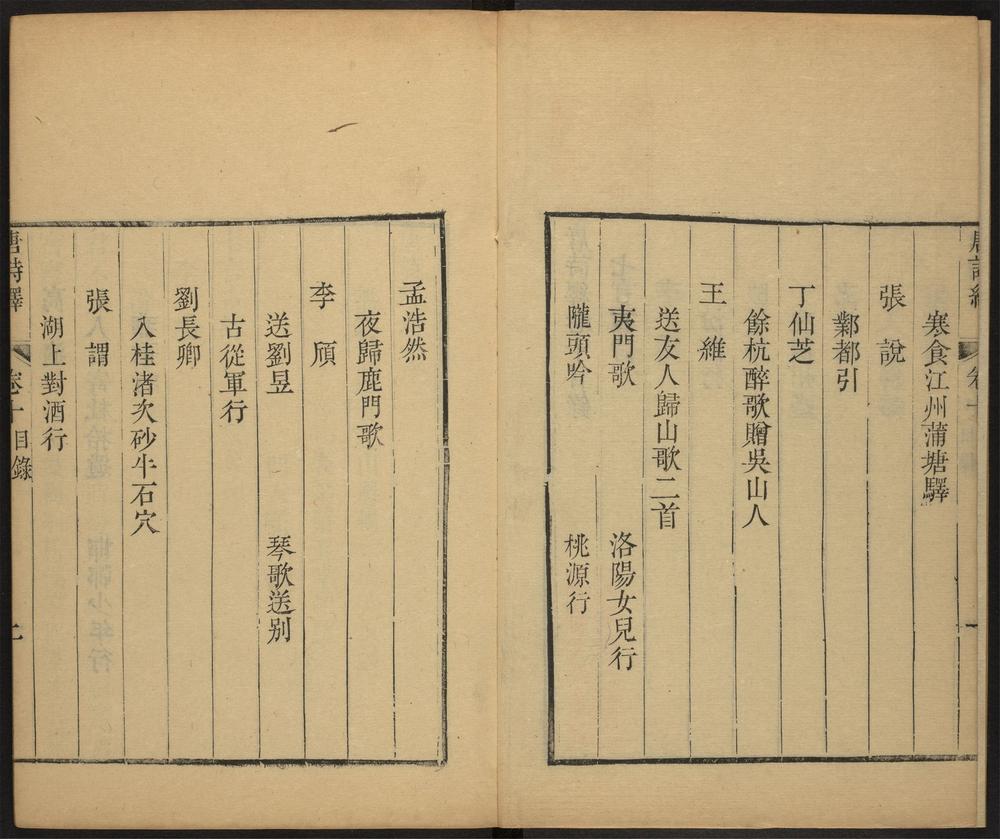 寒食江州蒲塘驛
張說
鄴都引
丁仙芝
餘杭醉歌贈吳山人
王維
送友人歸山歌二首
夷門歌 洛陽女兒行
隴頭吟 桃源行
孟浩然
夜歸鹿門歌
李頎
送劉昱 琴歌送別
古從軍行
劉長卿
入桂渚次砂牛石穴
張謂
湖上對酒行
唐詩繹 卷十目錄